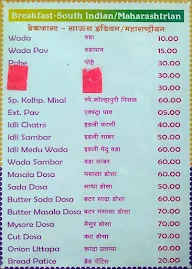 Breakfast-South Indian/Maharashtrian
ब्रेकफास्ट - साऊथ इंडियन/महाराष्ट्रीयन
Wada वडा 10.00
Wada Pav वडापाव 15.00
Pohe पोहे 30.00
30.00
30.00
Sp. Kolhp. Misal स्पे.कोल्हापुरी मिसळ 60.00
Ext. Pav एक्स्ट्रा पाव 05.00
Idli Chatni इडली चटणी 40.00
Idli Sambar इडली सांबर 50.00
Idli Medu Wada इडली मेदु वडा 60.00
Wada Sambar वडा सांबर 60.00
Masala Dosa मसाला डोसा 60.00
Sada Dosa साधा डोसा 50.00
Butter Sada Dosa बटर सादा डोसा 60.00
Butter Masala Dosa बटर मसाला डोसा 70.00
Mysore Dosa मैसुर डोसा 70.00
Cut Dosa कट डोसा 70.00
Onion Uttapa कांदा उतप्पा 60.00
Bread Patice ब्रेड पॅटिस 20.00